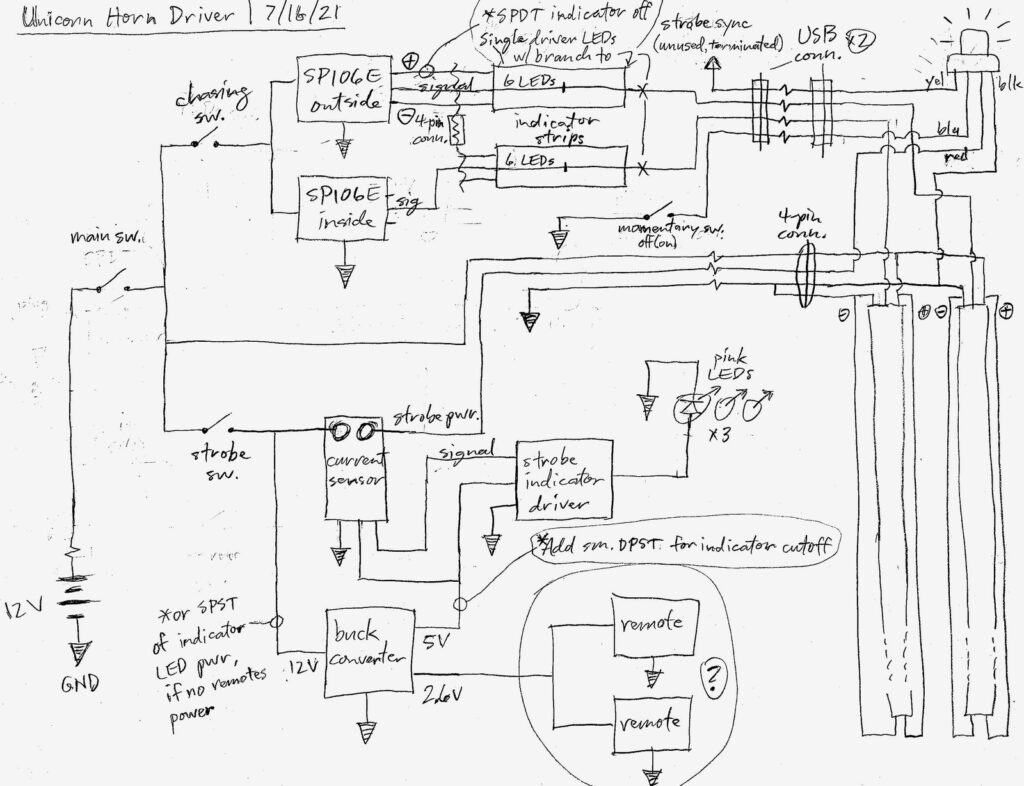 Unicorn Horn Driver | 7/16/21
*SPDT indicator off
single driver LEDs
w/ branch to
strobe sync
(unused, terminated)
USB x2
conn.
yel
blk
blu
red
chasing
sw.
SP106E
outside
+
signal
-
4-pin
conn.
6 LEDs
indicator
strips
6 LEDs
SP106E
inside
sig
momentary sw.
off(on)
4-pin
conn.
main sw.
- + - +
strobe
sw.
strobe pwr.
current
sensor
signal
strobe
indicator
driver
pink
LEDs
x3
*Add sm. DPST for indicator cutoff
12V
GND
*or SPST
of indicator
LED pwr,
if no remotes
power
12V
buck
converter
5V
2.6V
remote
?
remote